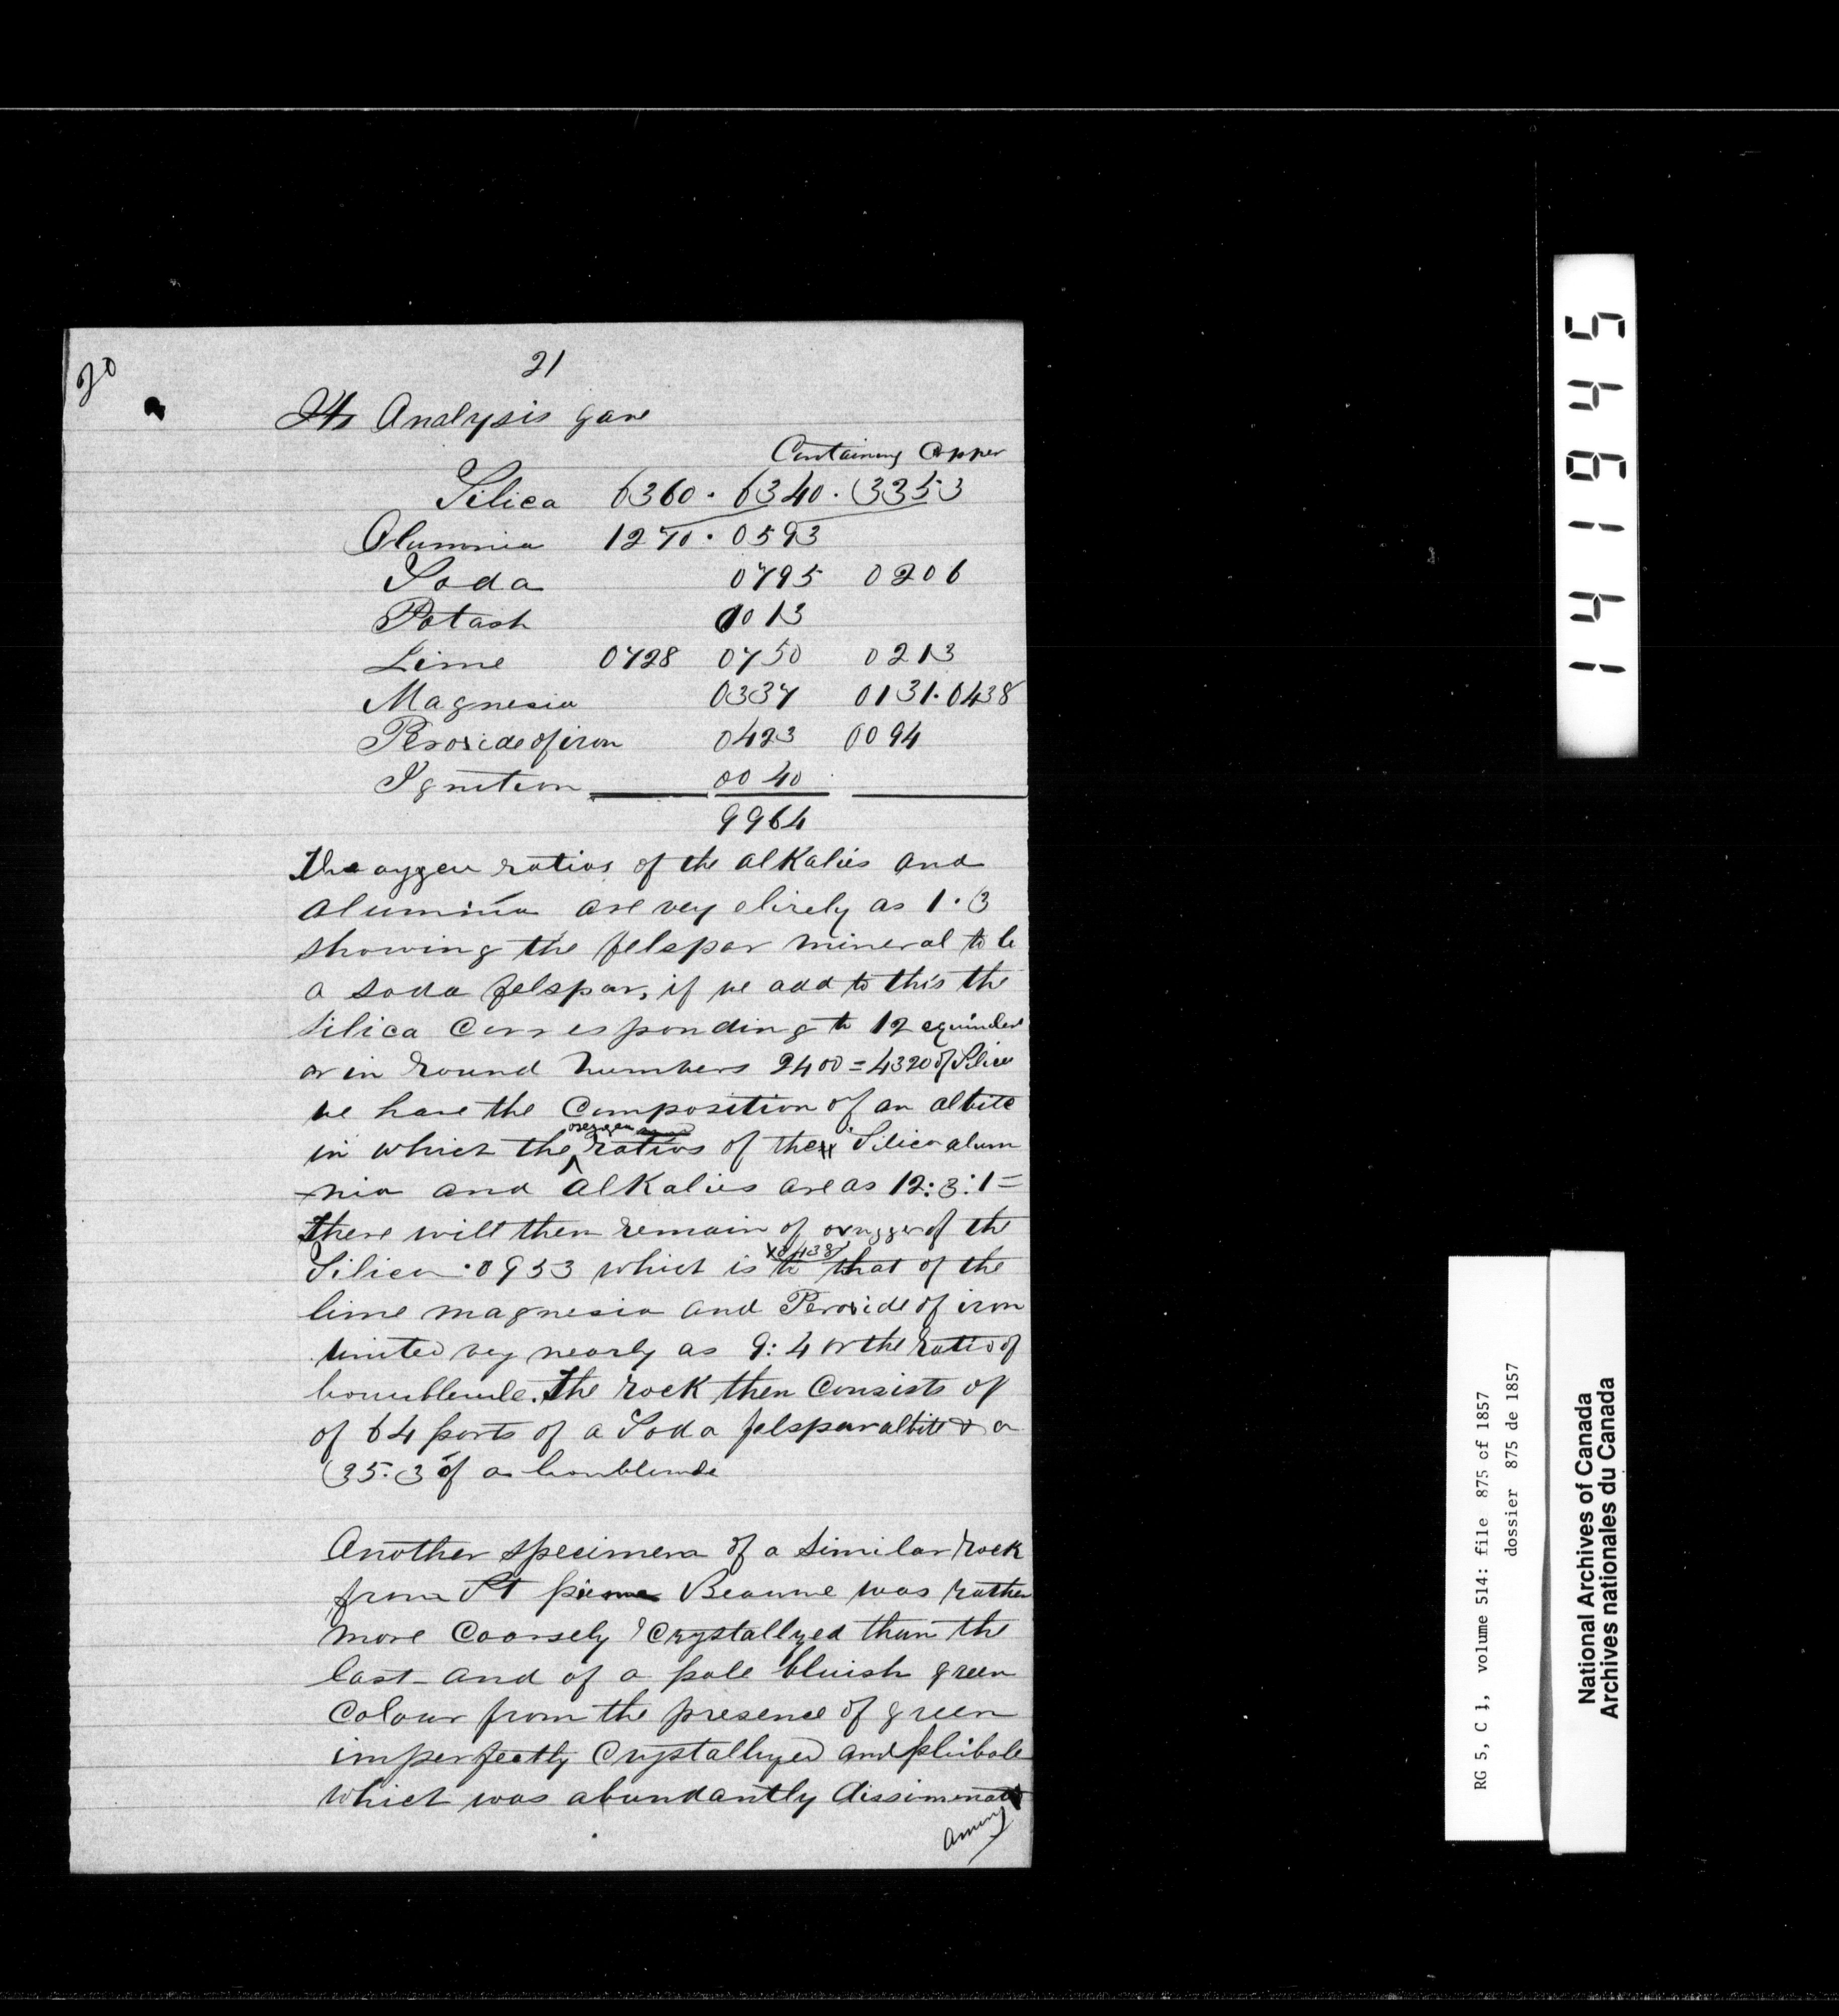 20
21
Its Analysis gave
Containing Copper
Silica 6360 . 6340 . 3353
Alumnia 1270 . 0593
Soda 0795 0206
Potash 0013
Lime 0728 0750 0213
Magnesia 0337 0131.0438
Peroxide of iron 0423 0094
Ignition 0040
9964
The oxygen ratios of the alKalies and
alumina are very as 1.3
showing the felspar mineral to be
a soda felspar, if we add to this the
Silica Corresponding to 12
or in round numbers 2400=4320 of Silica
we have the Composition of an albite
oxygen
in which the ratios of the Silica alum
-nia and alKalies are as 12:3:1=
there will then remain of of the
x0438
Silica .0953 which is to that of the
lime magnesia and Peroxide of iron
united very nearly as 9:4 or the ratio of
hournblende. The rock then Consists of
of 64 parts of a Soda felspar albite & a
35.3 of a hornblende
Another specimen of a similar rock
from St Beaume was rather
more Coarsely Crystallyzed than the
last and of a pale bluish green
Colour from the presence of green
imperfectly Crystallyzed and phibole
which was abundantly dissiminated
among
141945
RG 5, C 1, volume 514: file 875 of 1857
dossier 875 de 1857
National Archives of Canada
Archives nationales du Canada